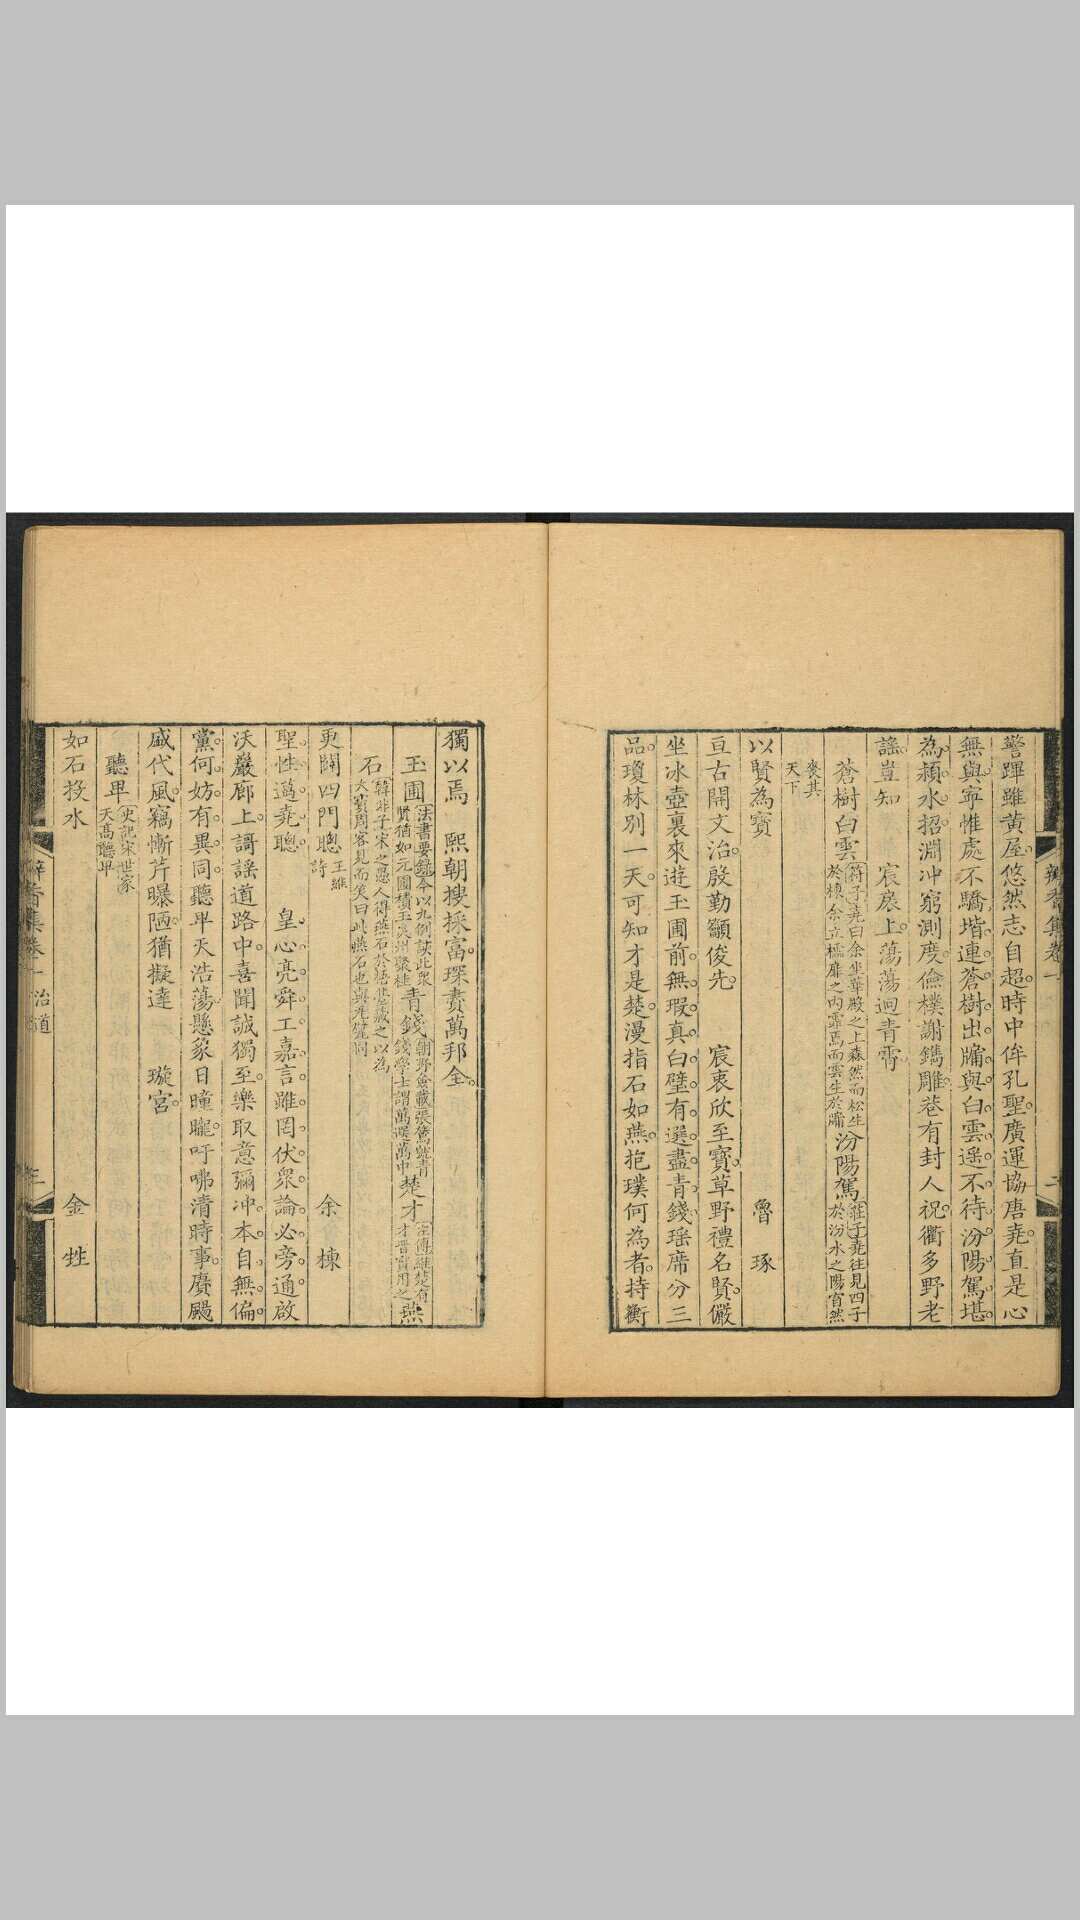 警蹕雖黃屋悠然志自超時中侔孔聖廣運協唐堯直是心
無與寧惟處不驕堦連蒼樹出牖與白雲遥不待汾陽駕堪
為潁水招淵冲窮測度儉樸謝鐫雕巷有封人祝衢多野老
謡豈知　宸扆上蕩蕩迥青霄
蒼樹白雲 符子堯曰余坐華殿之上森然而松生於棟余立櫺扉之内霏焉而雲生於牖 汾陽駕 莊子堯往見四子於汾水之陽窅然
喪其天下
以賢為寶　魯琢
亘古開文治殷勤籲俊先　宸衷欣至寶草野禮名賢儼
坐冰壺裏來遊玉圃前無瑕真白璧有選盡青錢瑶席分三
品瓊林别一天可知才是楚漫指石如燕抱璞何為者持衡
辦香集卷一　二
獨以焉　熙朝搜採富琛賚萬邦全
玉圃 法書要錄今以九例該此衆賢猶如元圃積玉炎州聚桂 青錢 朝野僉載張鷟號青錢學士謂萬選萬中 楚才 左傳雖楚有才晋實用之 燕
石 韓非子宋之愚人得燕石於梧臺藏之以為大寶周客見而笑曰此燕石也與瓦甓同
更闢四門聰 王維詩　余棟
聖性過堯聰　皇心亮舜工嘉言雖罔伏衆論必旁通啟
沃巖廊上謌謡道路中喜聞誠獨至樂取意彌冲本自無偏
黨何妨有異同聽卑天浩蕩懸象日曈曨吁咈清時事賡颺
盛代風竊慚芹曝陋猶擬達　璇宮
聽卑 史記宋世家天髙聽卑
如石投水　金甡
辦香集卷一　治道　三